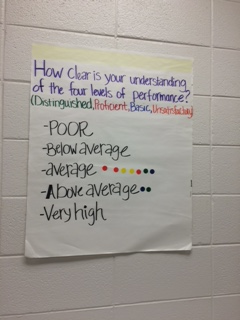 How clear is your understanding
of the four levels of performance?
(Distinguished, Proficient, Basic, Unsatisfactory)
-POOR
-Below average
-average
-Above average
-Very high